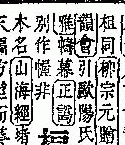 祖同柳宗元贈
韻會引歐陽氏
幃幕正譌
別作幄非
木名山海經